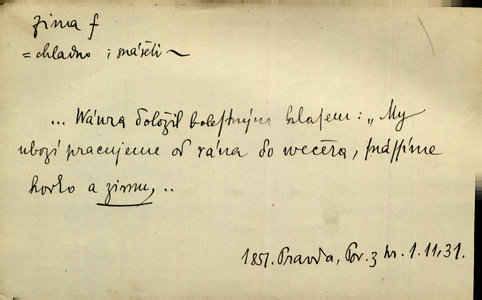 zima f
= chladno ; snášeti ~
... Wáwra doložil bolestným hlasem: „My
ubozí pracujeme od rána do wečera, snášíme
horko a zimu, ..
1851. Pravda, Pov. z kr. 1. 11, 31.